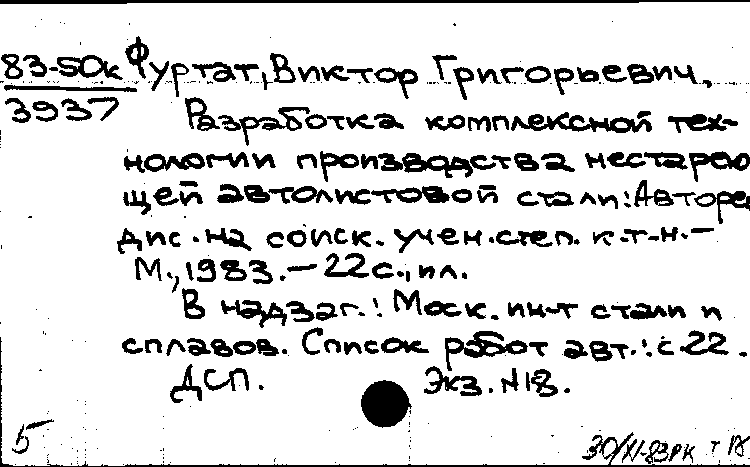 83-50к Фуртат, Виктор Григорьевич,
3937 Разработка комплексной тех-
нологии производства нестарею
щей автолистовой стали: Авторе
дис. на соиск. учен. степ. к.т.н. —
М., 1983. — 22 с., ил.
В надзаг.: Моск. ин-т стали и
сплавов. Список работ авт.: с. 22.
ДСП. Экз. №18.
5
30/XI-83